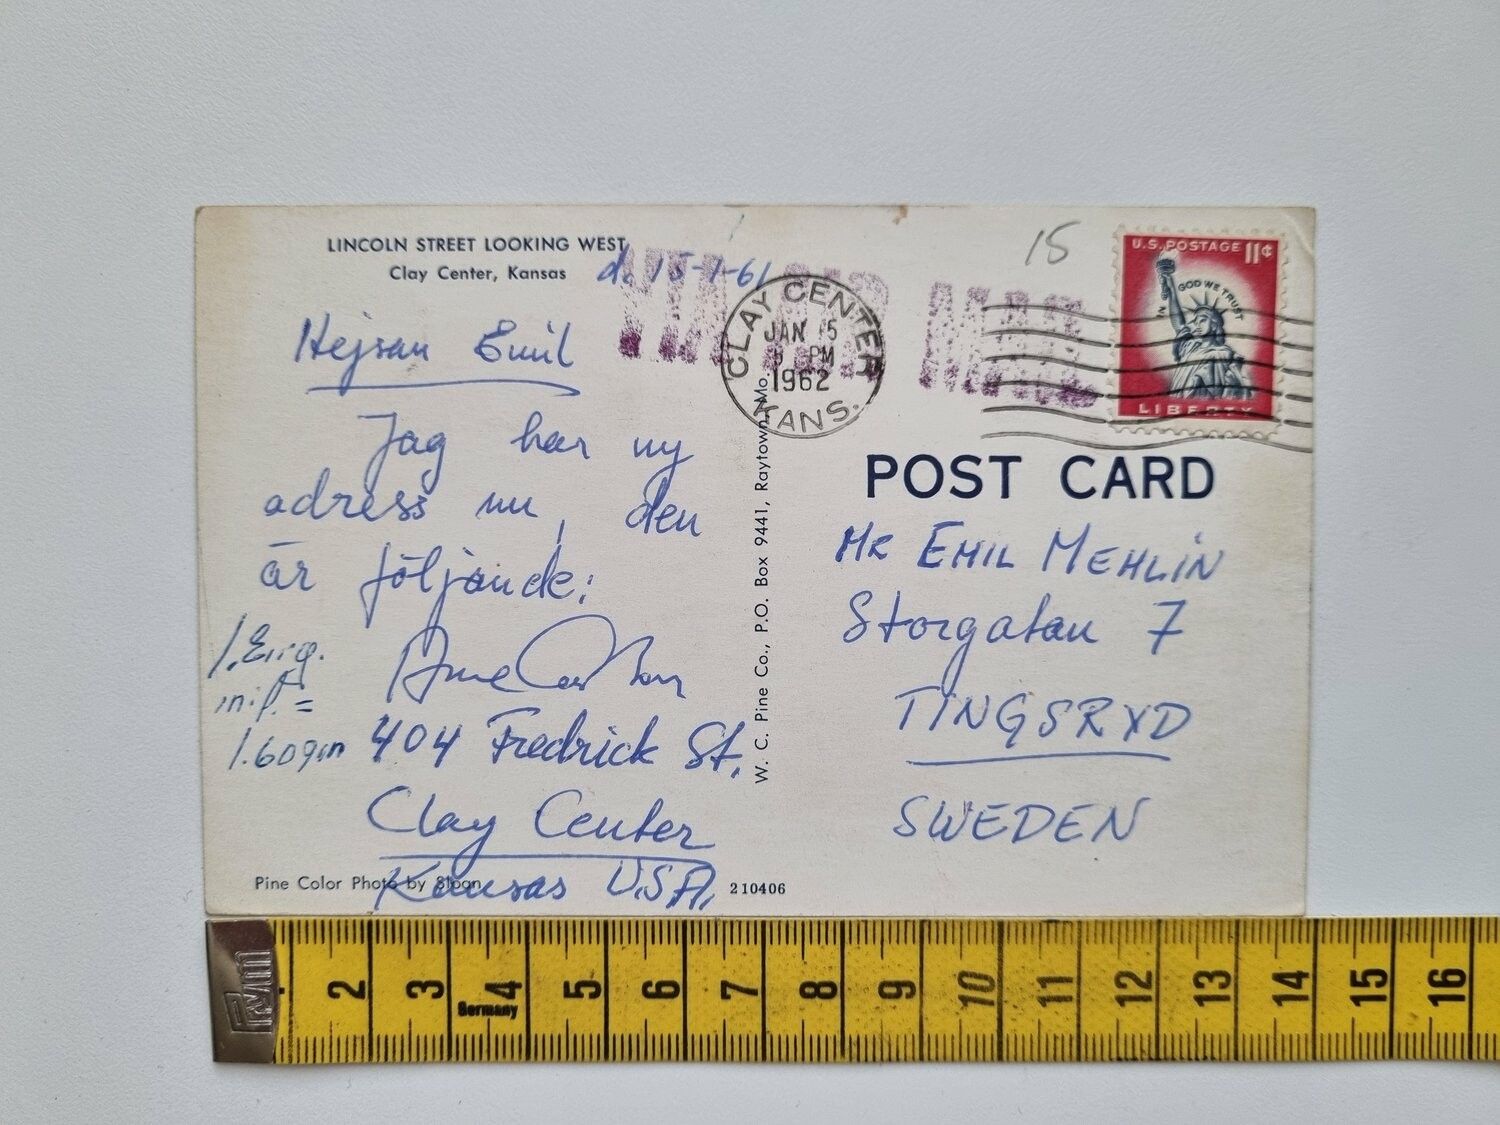 LINCOLN STREET LOOKING WEST
Clay Center, Kansas
d. 15-1-61
Hejsan Emil
Jag har ny
adress nu, den
är följande:
Arne Carlson
404 Fredrick St.
Clay Center
Kansas U.S.A.
1. Eng.
1.609 m
Pine Color Photo by Sloan
210406
W. C. Pine Co., P.O. Box 9441, Raytown, Mo.
VIA AIR MAIL
CLAY CENTER
JAN 15
PM
1962
KANS.
15
U.S. POSTAGE 11¢
IN GOD WE TRUST
LIBERTY
POST CARD
MR EMIL MEHLIN
Storgatan 7
TINGSRYD
SWEDEN
2 3 4 5 6 7 8 9 10 11 12 13 14 15 16
Germany
Prym